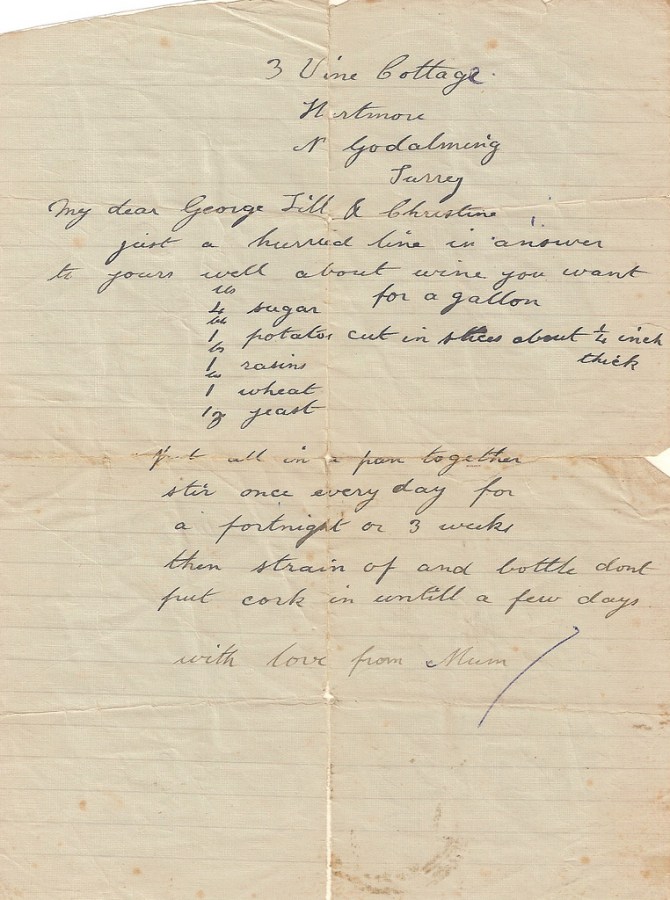 3 Vine Cottage.
Hurtmore
Nr Godalming
Surrey
My dear George Jill & Christine,
just a hurred line in answer
to yours well about wine you want
lbs
4 sugar for a gallon
lb
1 potatos cut in slices about 1/4 inch
lb thick
1 rasins
lb
1 wheat
1 oz yeast
Put all in a pan together
stir once every day for
a fortnight or 3 weeks
then strain of and bottle dont
put cork in untill a few days
with love from Mum